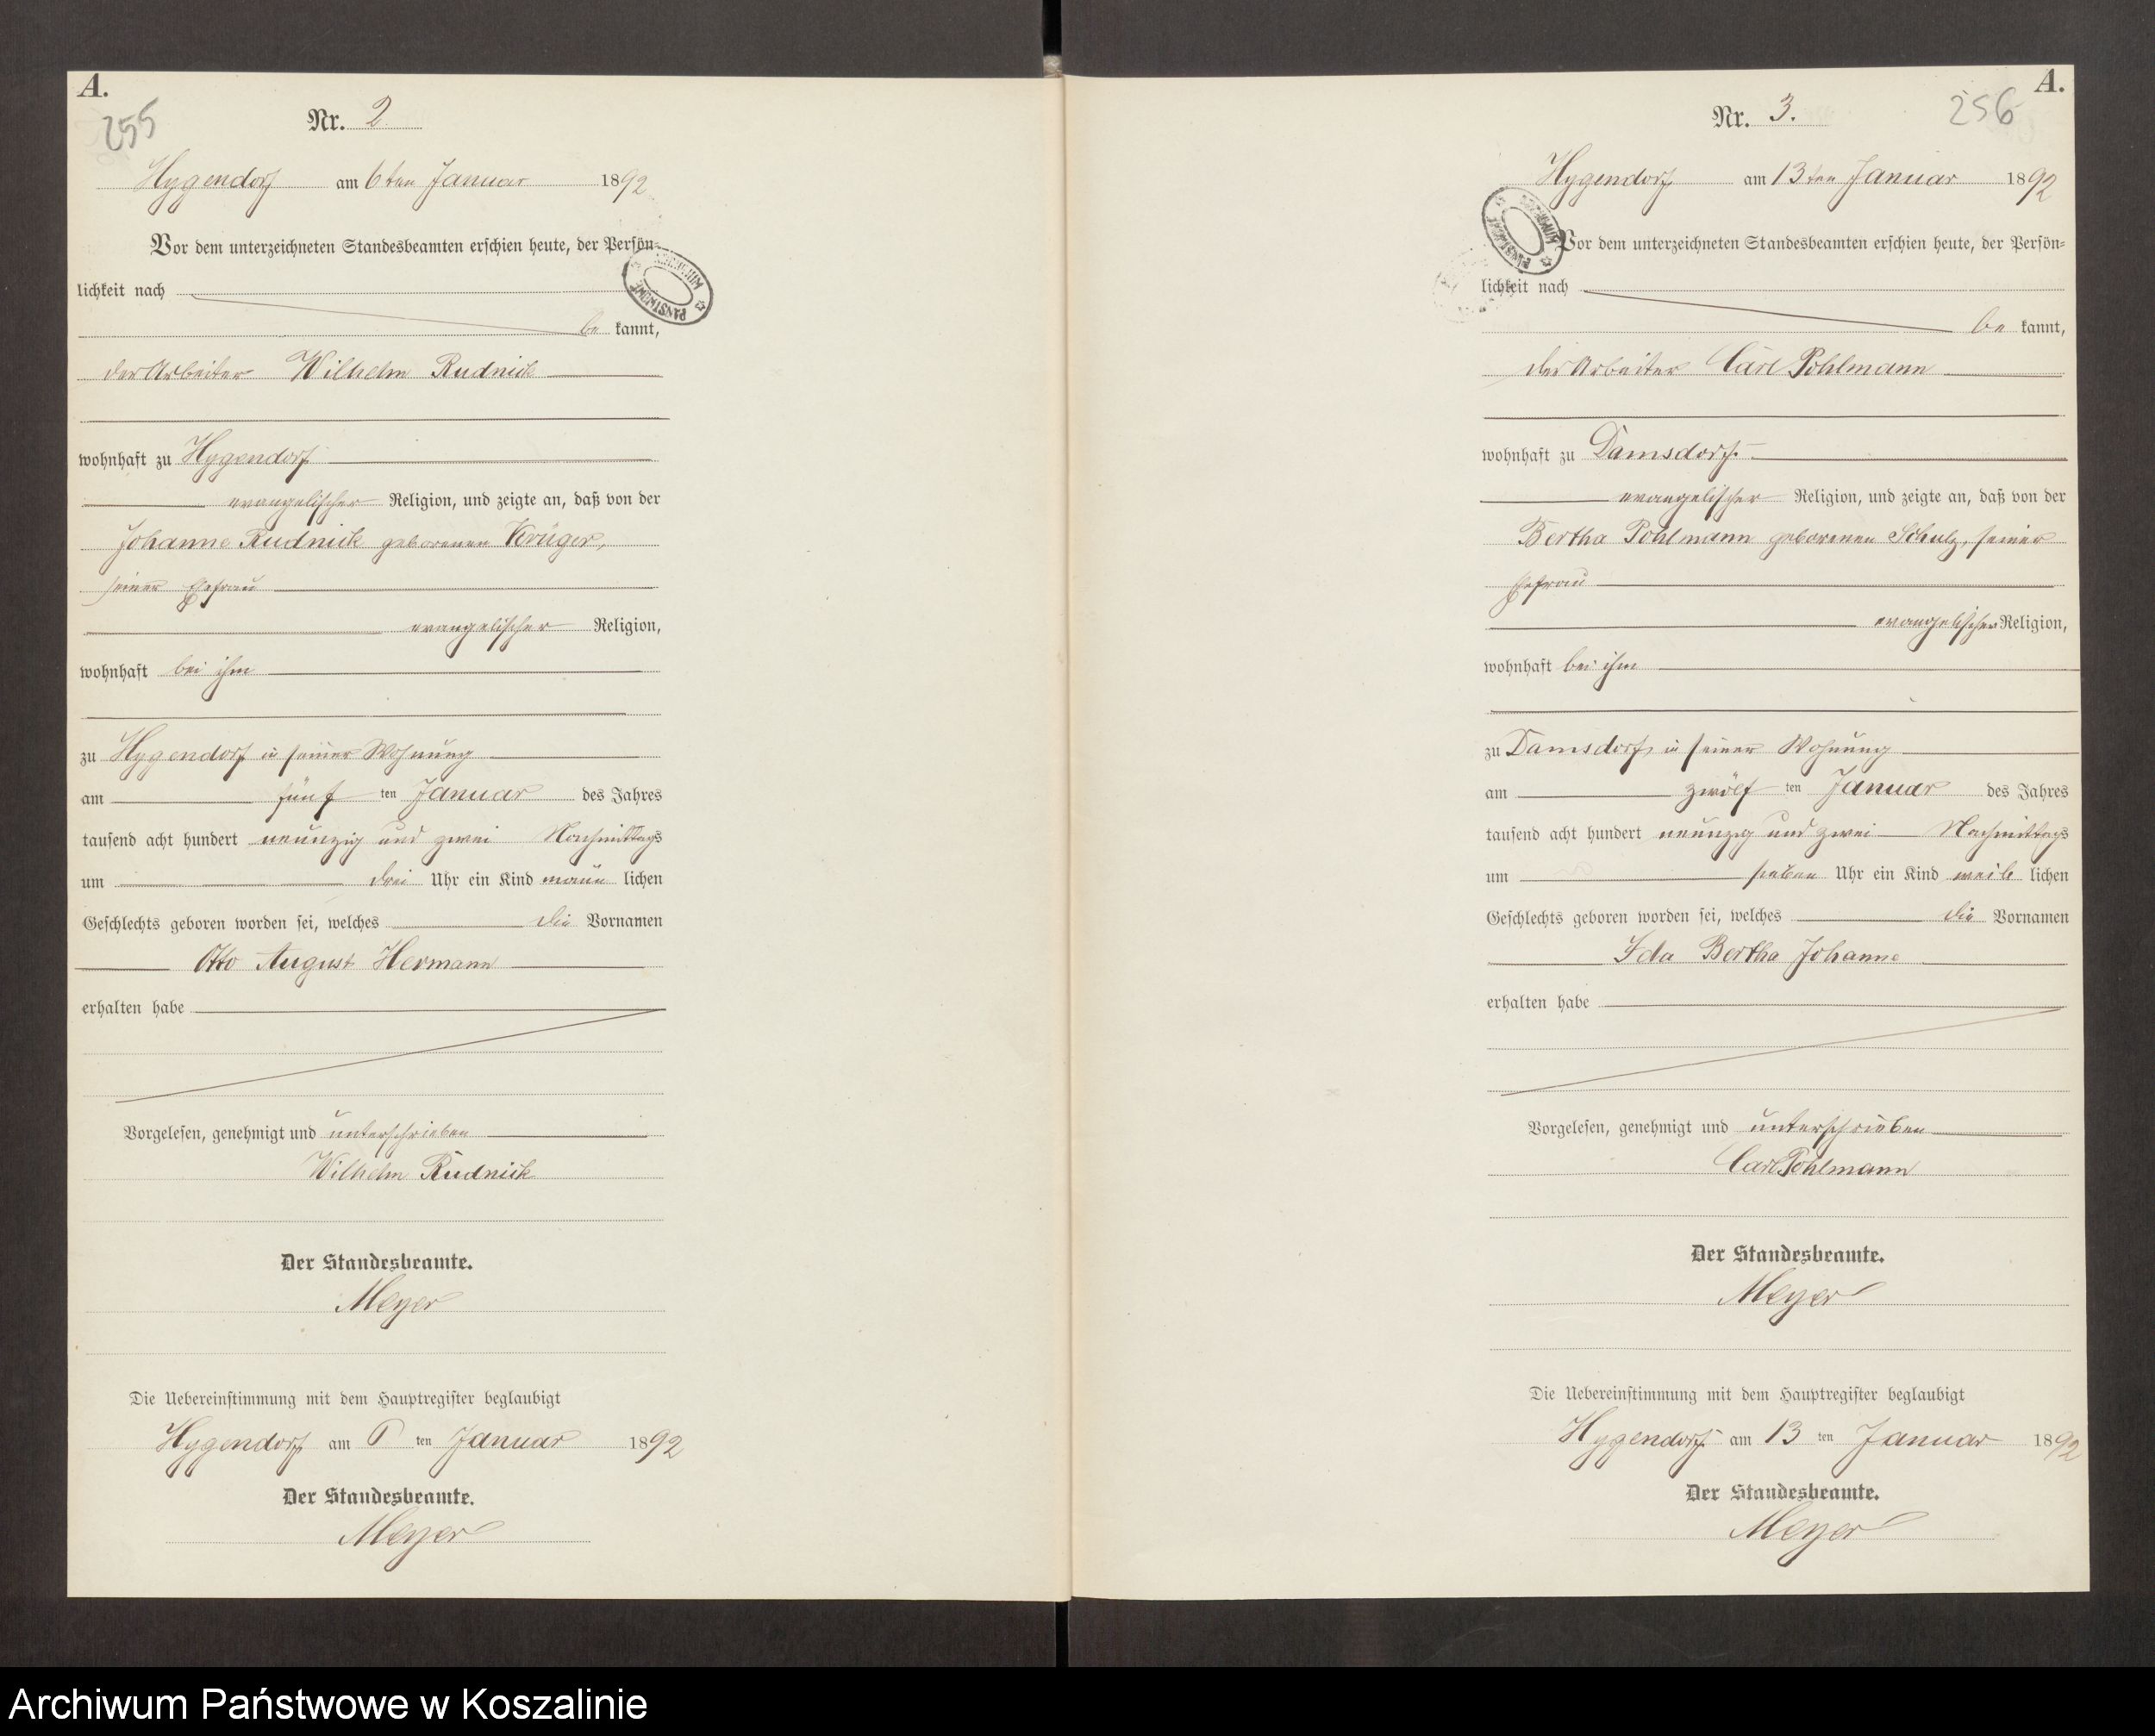 A.
255
Nr. 2
Hygendorf am 6ten Januar 1892
Vor dem unterzeichneten Standesbeamten erschien heute, der Persön-
lichkeit nach
be kannt,
der Arbeiter Wilhelm Rudnick
wohnhaft zu Hygendorf
evangelischer Religion, und zeigte an, daß von der
Johanne Rudnick geborenen Krüger,
seiner Ehefrau
evangelischer Religion,
wohnhaft bei ihm
zu Hygendorf in seiner Wohnung
am fünf ten Januar des Jahres
tausend acht hundert neunzig und zwei Nachmittags
um drei Uhr ein Kind männ lichen
Geschlechts geboren worden sei, welches die Vornamen
Otto August Hermann
erhalten habe
Vorgelesen, genehmigt und unterschrieben
Wilhelm Rudnick
Der Standesbeamte.
Meyer
Die Uebereinstimmung mit dem Hauptregister beglaubigt
Hygendorf am 6 ten Januar 1892
Der Standesbeamte.
Meyer
A.
256
Nr. 3.
Hygendorf am 13ten Januar 1892
Vor dem unterzeichneten Standesbeamten erschien heute, der Persön-
lichkeit nach
be kannt,
der Arbeiter Carl Pohlmann
wohnhaft zu Damsdorf
evangelischer Religion, und zeigte an, daß von der
Bertha Pohlmann geborenen Schulz, seiner
Ehefrau
evangelischer Religion,
wohnhaft bei ihm
zu Damsdorf, in seiner Wohnung
am zwölf ten Januar des Jahres
tausend acht hundert neunzig und zwei Nachmittags
um sieben Uhr ein Kind weib lichen
Geschlechts geboren worden sei, welches die Vornamen
Ida Bertha Johanne
erhalten habe
Vorgelesen, genehmigt und unterschrieben
Carl Pohlmann
Der Standesbeamte.
Meyer
Die Uebereinstimmung mit dem Hauptregister beglaubigt
Hygendorf am 13 ten Januar 1892
Der Standesbeamte.
Meyer
Archiwum Państwowe w Koszalinie